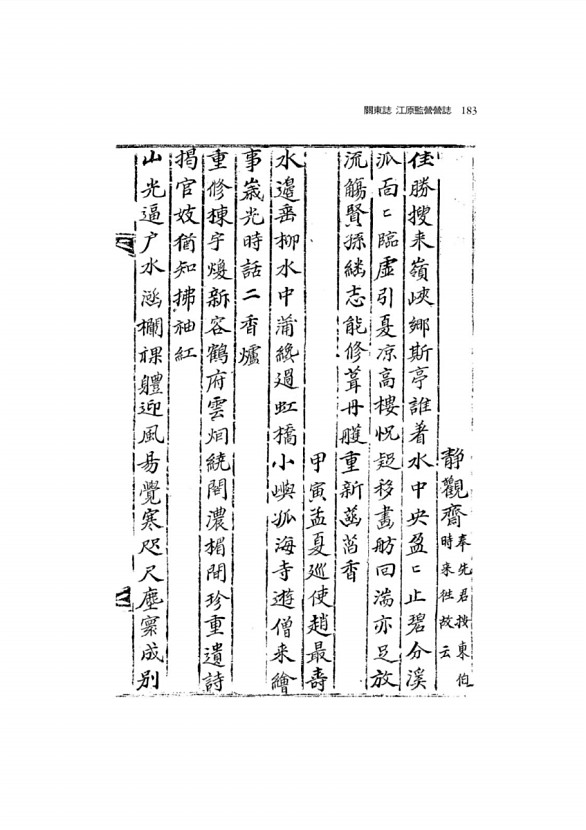 關東誌 江原監營營誌 183
静觀齋 奉先君按東伯
時来往故云
佳勝搜来嶺峽鄉斯亭誰着水中央盈〻止碧分溪
派咼〻臨虛引夏凉高樓怳疑移畵舫回湍亦足放
流觴賢孫継志能修葺丹雘重新菡萏香
甲寅孟夏巡使趙最壽
水邉垂柳水中蒲纔過虹橋小嶼孤海寺遊僧来繪
事嵗光時話二香爐
重修棟宇煥新容鶴府雲烟繞閣濃楣間珍重遺詩
揭官妓猶知拂袖紅
山光逼户水涵欄裸軆迎風易覺寒咫尺塵寰成别